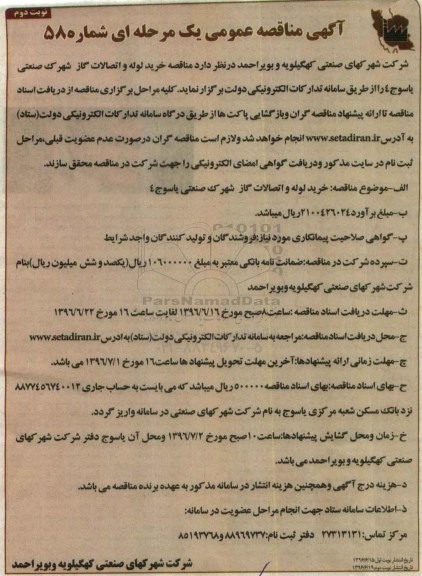 نوبت دوم
آگهی مناقصه عمومی یک مرحله ای شماره ۵۸
شرکت شهرکهای صنعتی کهگیلویه و بویراحمد درنظر دارد مناقصه خرید لوله و اتصالات گاز شهرک صنعتی
یاسوج٤ را از طریق سامانه تدارکات الکترونیکی دولت برگزار نماید. کلیه مراحل برگزاری مناقصه از دریافت اسناد
مناقصه تا ارائه پیشنهاد مناقصه گران وبازگشایی پاکت ها از طریق درگاه سامانه تدارکات الکترونیکی دولت(ستاد)
به آدرس www.setadiran.ir انجام خواهد شد ولازم است مناقصه گران درصورت عدم عضویت قبلی،مراحل
ثبت نام در سایت مذکور ودریافت گواهی امضای الکترونیکی را جهت شرکت در مناقصه محقق سازند.
الف-موضوع مناقصه: خرید لوله و اتصالات گاز شهرک صنعتی یاسوج٤
ب-مبلغ برآورد۲۱۰۰٤۳۶۰۲٤ریال میباشد.
پ-گواهی صلاحیت پیمانکاری مورد نیاز:فروشندگان و تولید کنندگان واجد شرایط
ت-سپرده شرکت در مناقصه:ضمانت نامه بانکی معتبر به مبلغ ۱۰۶۰۰۰۰۰۰ ریال(یکصد و شش میلیون ریال)بنام
شرکت شهرکهای صنعتی کهگیلویه وبویراحمد
ث-مهلت دریافت اسناد مناقصه :ساعت۸صبح مورخ ۱۳۹۶/۶/۱۶ لغایت ساعت ۱۶ مورخ ۱۳۹۶/۶/۲۲
ج-محل دریافت اسناد مناقصه:مراجعه به سامانه تدارکات الکترونیکی دولت(ستاد)به ادرس www.setadiran.ir
چ-مهلت زمانی ارائه پیشنهادها:آخرین مهلت تحویل پیشنهاد ها ساعت۱۶ مورخ ۱۳۹۶/۷/۱ می باشد.
ح-بهای اسناد مناقصه:بهای اسناد مناقصه ۵۰۰۰۰۰ ریال میباشد که می بایست به حساب جاری ۸۸۷۷٤۵۶۷٤۰۰۱۲
نزد بانک مسکن شعبه مرکزی یاسوج به نام شرکت شهرکهای صنعتی در سامانه واریز گردد.
خ-زمان ومحل گشایش پیشنهادها:ساعت۱۰صبح مورخ ۱۳۹۶/۷/۲ ومحل آن یاسوج دفتر شرکت شهرکهای
صنعتی کهگیلویه و بویراحمد می باشد.
د-هزینه درج آگهی وهمچنین هزینه انتشار در سامانه مذکور به عهده برنده مناقصه می باشد.
ذ-اطلاعات سامانه ستاد جهت انجام مراحل عضویت در سامانه:
مرکز تماس:۲۷۳۱۳۱۳۱ دفتر ثبت نام:۸۸۹۶۹۷۳۷و۸۵۱۹۳۷۶۸
شرکت شهرکهای صنعتی کهگیلویه وبویراحمد
تاریخ انتشار نوبت اول:۱۳۹۶/۶/۱۵
تاریخ انتشار نوبت دوم:۱۳۹۶/۶/۱۹
ParsNamadData